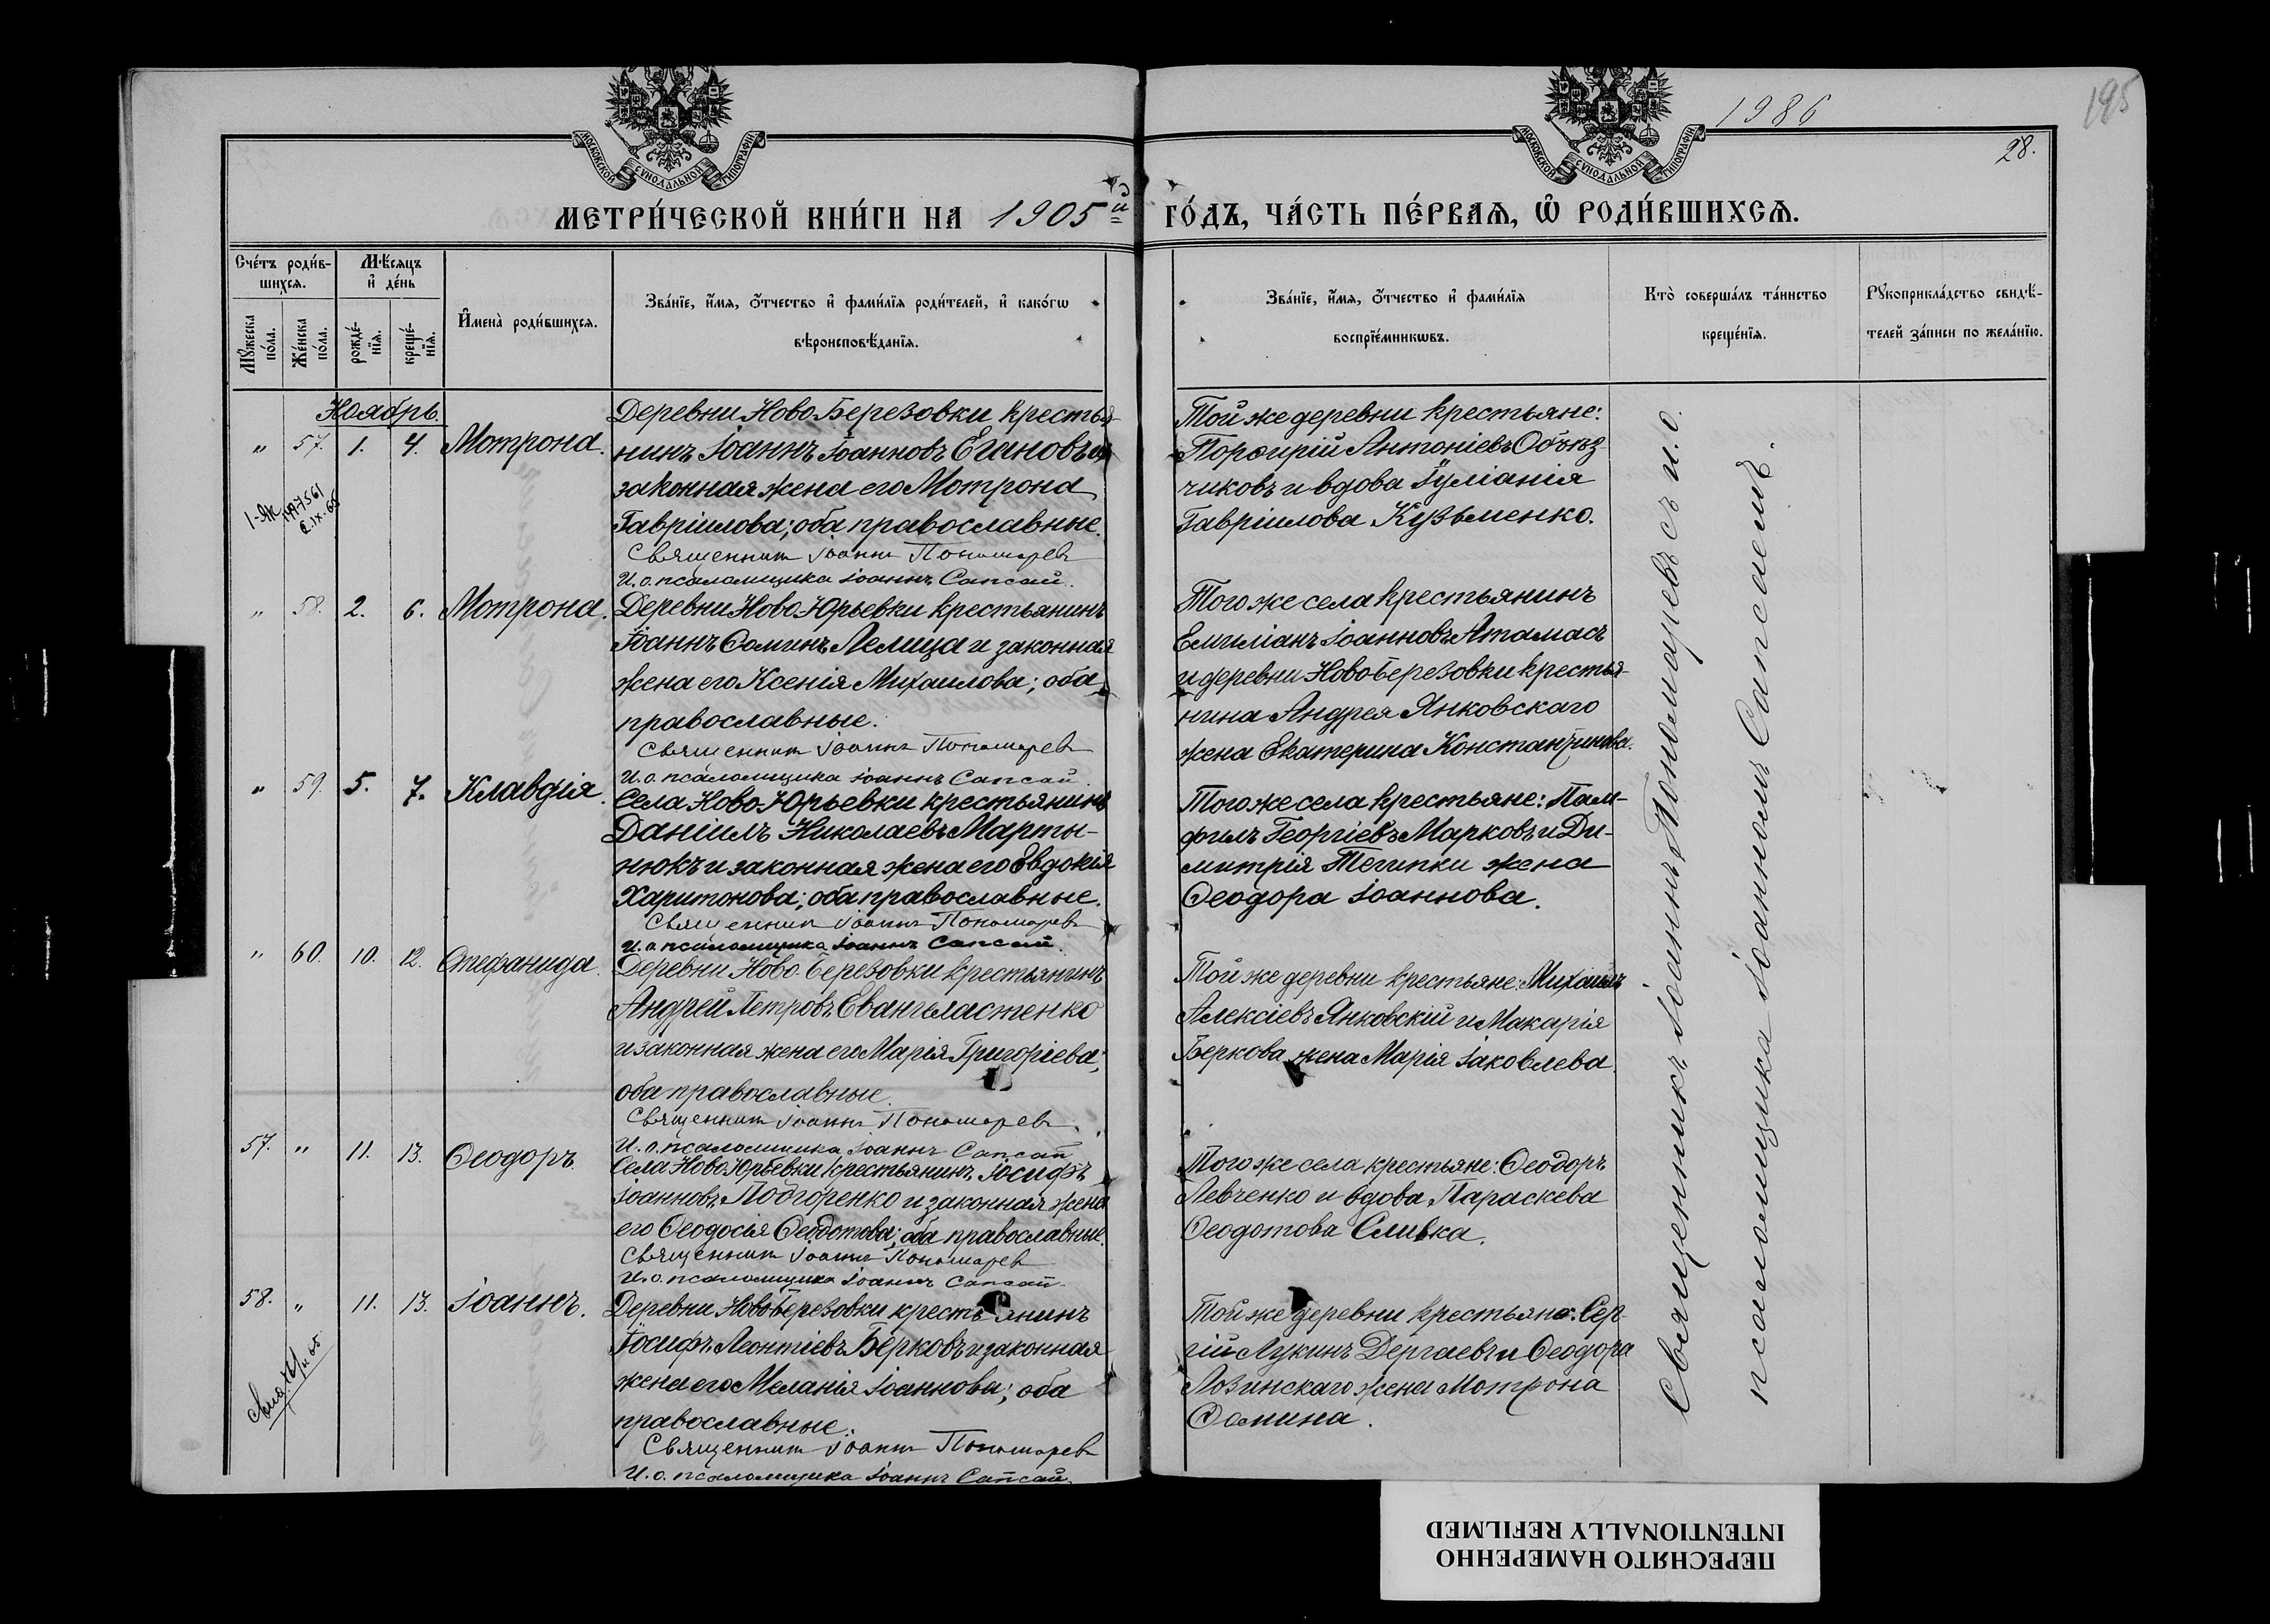 МОСКОВСКОЙ СѴНОДАЛЬНОЙ ТИПОГРАФІИ
МОСКОВСКОЙ СѴНОДАЛЬНОЙ ТИПОГРАФІИ
1986
195
28.
МЕТРИ́ЧЕСКОЙ КНИ́ГИ НА 1905й ГО́ДЪ, ЧА́СТЬ ПЕ́РВАѦ, Ѡ҆ РОДИ́ВШИХСѦ.
Сче́тъ роди́в-
шихсѧ.
Мѣ́сѧцъ
и҆ де́нь
Мꙋ́жеска
по́ла.
Же́нска
по́ла.
рожде́-
нїѧ.
креще́-
нїѧ.
И҆мена̀ роди́вшихсѧ.
Зва́нїе, и҆́мѧ, ѻ҆́тчество и҆ фами́лїѧ роди́телей, и҆ како́гѡ
вѣроисповѣ́данїѧ.
Зва́нїе, и҆́мѧ, ѻ҆́тчество и҆ фами́лїѧ
воспрїе́мникѡвъ.
Кто̀ соверша́лъ та́инство
креще́нїѧ.
Рꙋкоприкла́дство свидѣ́-
телей за́писи по жела́нїю.
Ноябрь
" 57. 1. 4. Мотрона.
Деревни Ново-Березовки крестья-
нинъ Іоаннъ Іоанновъ Егановъ и
законная жена его Мотрона
Гавріилова; оба православные.
Священникъ Іоаннъ Пономаревъ
И. о. псаломщика Іоаннъ Сапсай.
Той же деревни крестьяне:
Порфирій Антоніевъ Объѣз-
чиковъ и вдова Іуліанія
Гавріилова Кузьменко.
" 58. 2. 6. Мотрона.
Деревни Ново-Юрьевки крестьянинъ
Іоаннъ Ѳоминъ Лемица и законная
жена его Ксенія Михаилова; оба
православные.
Священникъ Іоаннъ Пономаревъ
И. о. псаломщика Іоаннъ Сапсай
Того же села крестьянинъ
Емиліанъ Іоанновъ Атамасъ
и деревни Ново-Березовки крестья-
нина Андрея Янковскаго
жена Екатерина Константинова.
" 59. 5. 7. Клавдія.
Села Ново-Юрьевки крестьянинъ
Даніилъ Николаевъ Марты-
нюкъ и законная жена его Евдокія
Харитонова; оба православные.
Священникъ Іоаннъ Пономаревъ
И. о. псаломщика Іоаннъ Сапсай.
Того же села крестьяне: Пам-
филъ Георгіевъ Марковъ и Ди-
митрія Тегипки жена
Ѳеодора Іоаннова.
" 60. 10. 12. Стефанида.
Деревни Ново-Березовки крестьянинъ
Андрей Петровъ Евангеластенко
и законная жена его Марія Григоріева;
оба православные.
Священникъ Іоаннъ Пономаревъ.
И. о. псаломщика Іоаннъ Сапсай
Той же деревни крестьяне: Михаилъ
Алексіевъ Янковскій и Макарія
Беркова жена Марія Іаковлева.
57. " 11. 13. Ѳеодоръ.
Села Ново-Юрьевки крестьянинъ Іосифъ
Іоанновъ Подгоренко и законная жена
его Ѳеодосія Ѳеодотова; оба православные.
Священникъ Іоаннъ Пономаревъ
И. о. псаломщика Іоаннъ Сапсай
Того же села крестьяне: Ѳеодоръ
Левченко и вдова Параскева
Ѳеодотова Сливка.
58. " 11. 13. Іоаннъ.
Деревни Ново-Березовки крестьянинъ
Іосифъ Леонтіевъ Берковъ и законная
жена его Меланія Іоаннова; оба
православные.
Священникъ Іоаннъ Пономаревъ
И. о. псаломщика Іоаннъ Сапсай.
Той же деревни крестьяне: Сер-
гій Лукинъ Дергаевъ и Ѳеодора
Лозинскаго жена Мотрона
Ѳомина.
Священникъ Іоаннъ Пономаревъ съ и. о.
псаломщика Іоанномъ Сапсаемъ.
ПЕРЕСНЯТО НАМЕРЕННО
INTENTIONALLY REFILMED